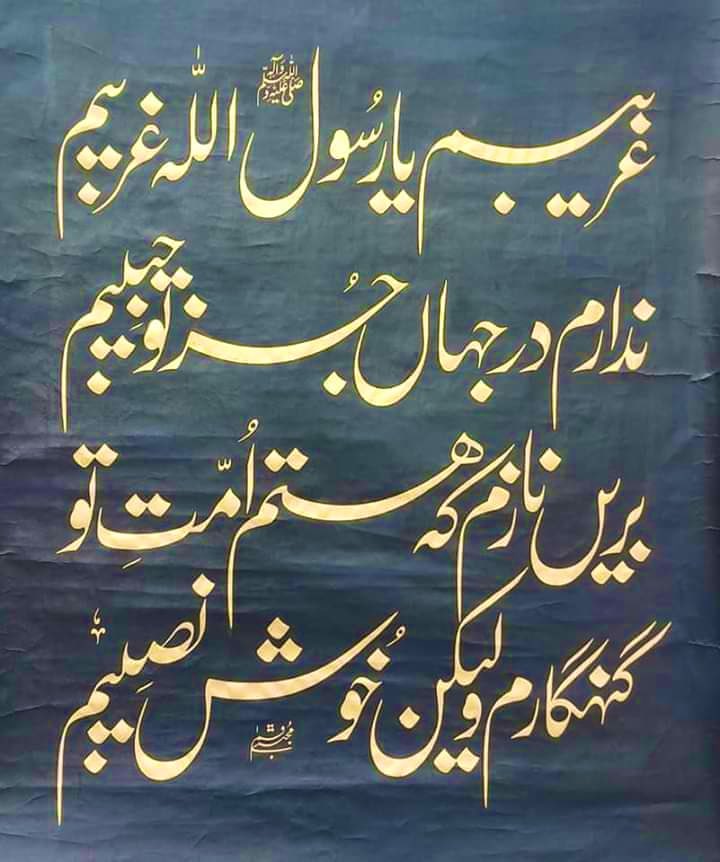 غریبم یا رسول اللہ غریبم
صلی اللہ علیہ وآلہ وسلم
ندارم در جہاں جُز تو حبیبم
بریں نازم کہ ہستم اُمّتِ تو
گنہگارم ولیکن خُوش نصیبم